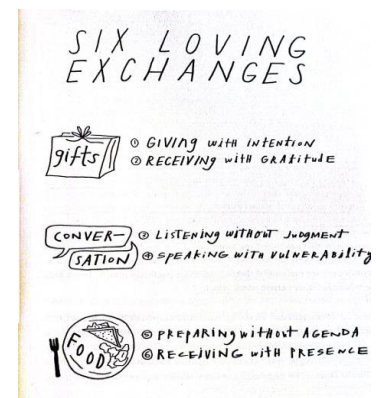 SIX LOVING
EXCHANGES
gifts
① GIVING with INTENTION
② RECEIVING with GRATITUDE
CONVER-
SATION
③ LISTENING WITHOUT JUDGMENT
④ SPEAKING WITH VULNERABILITY
FOOD
⑤ PREPARING WITHOUT AGENDA
⑥ RECEIVING with PRESENCE